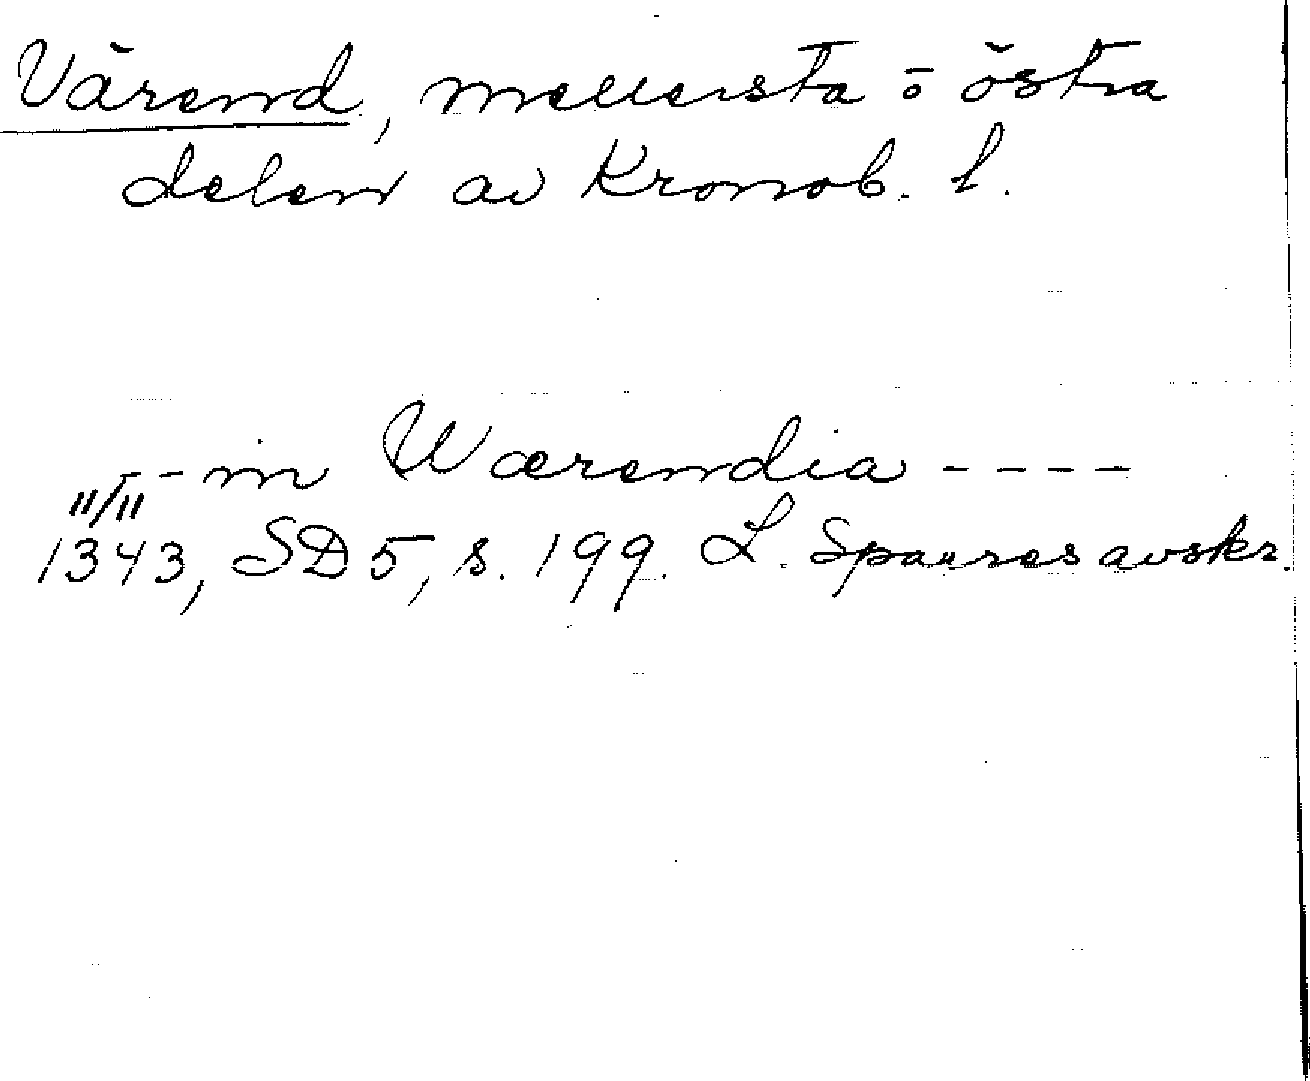 Värend, mellersta o östra
delen av Kronob. l.
-- in Wærendia ----
11/11
1343, SD 5, s. 199. L. Sparres avskr.